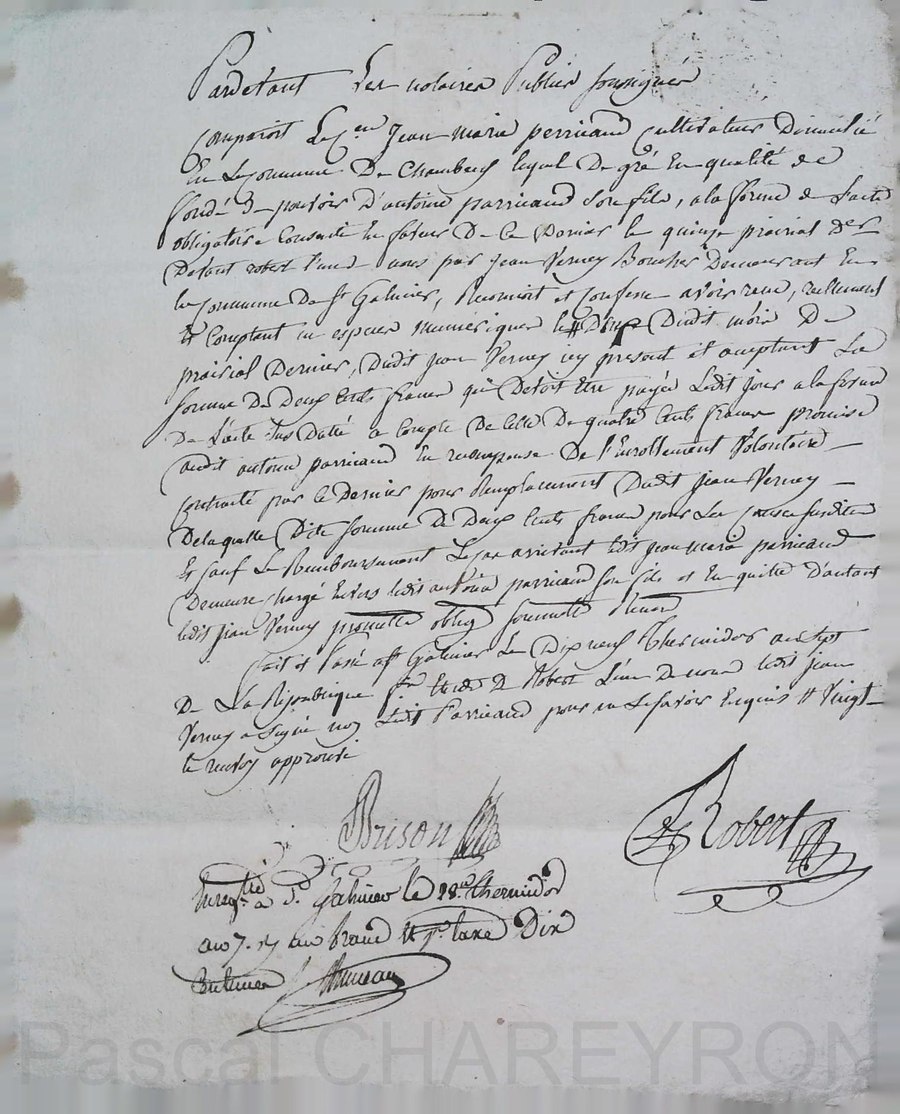 Pardevant Les notaires Publics soussignés
Comparoit Le Cen Jean Marie perricaud Cultivateur Domicilié
En La Commune De Chambeuf lequel De gré En qualité de
fondé De pouvoir D'antoine parricaud Son fils, a la forme de l'acte
obligatoire Consenti En faveur De Ce Dernier le quinze prairial der
Devant robert l'un de nous par Jean Verney Boucher Demeurant En
la Commune De St Galmier, Reconnoit et Confesse avoir reçu, reellement
Et Comptant en especes numeriques le # Dudit mois De
prairial Dernier, Dudit jean Verney icy present et acceptant La
somme De Deux Cents francs qui Devoit Etre payée Ledit jour a la forme
De L'acte sus Datté a Compte De Celle De quatre Cents francs promise
audit antoine parricaud En recompense De l'Enrollement Volontaire
Contracté par Ce Dernier pour Remplacement Dudit jean Verney
De laquelle Dite somme De Deux Cents francs pour Les Causes susdites
Et sauf Le Remboursement Le Cas arrivant ledit jean marie parricaud
Demeure Chargé Envers ledit antoine parricaud son fils et En quitte D'autant
ledit jean Verney promettant oblig soumettant Renon
fait et Passé a St Galmier Le Dix neuf Thermidor an sept
De La République Etude De Robert L'un De nous ledit jean
Verney a Signé non Ledit Parricaud pour ne Le savoir Enquis # Vingt
le renvoy approuvé
Brison
Robert
Enregtré a St Galmier le 28 thermidor
an 7. reçu un franc Se taxe Dix
Centimes
Pascal CHAREYRON